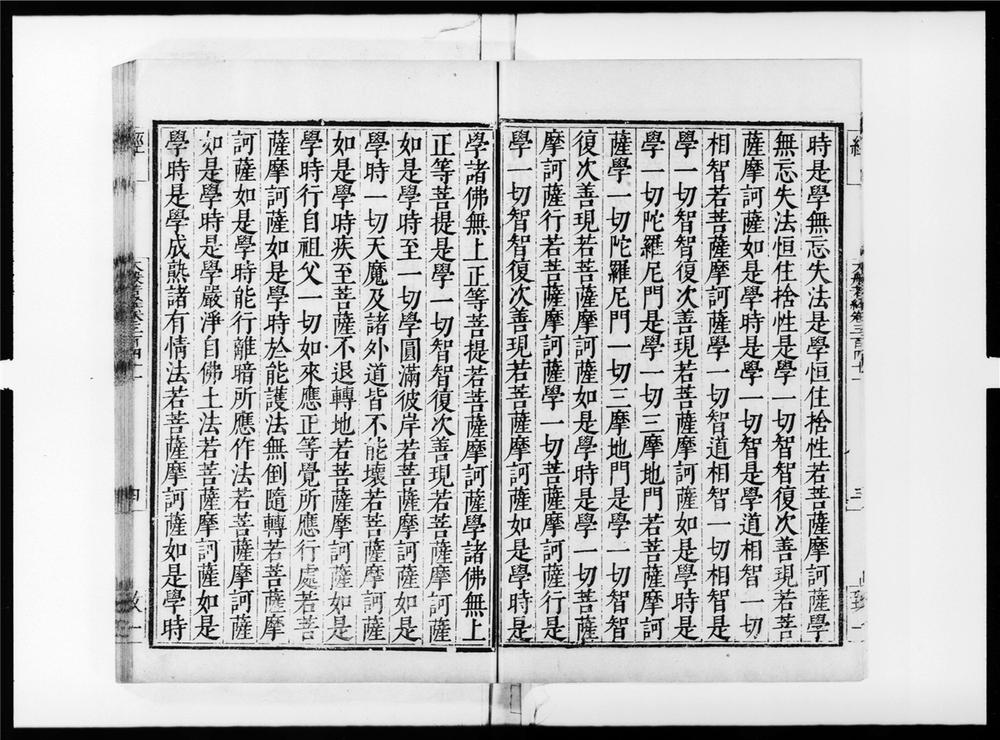 時是學無忘失法是學恒住捨性若菩薩摩訶薩學
無忘失法恒住捨性是學一切智智復次善現若菩
薩摩訶薩如是學時是學一切智是學道相智一切
相智若菩薩摩訶薩學一切智道相智一切相智是
學一切智智復次善現若菩薩摩訶薩如是學時是
學一切陀羅尼門是學一切三摩地門若菩薩摩訶
薩學一切陀羅尼門一切三摩地門是學一切智智
復次善現若菩薩摩訶薩如是學時是學一切菩薩
摩訶薩行若菩薩摩訶薩學一切菩薩摩訶薩行是
學一切智智復次善現若菩薩摩訶薩如是學時是
學諸佛無上正等菩提若菩薩摩訶薩學諸佛無上
正等菩提是學一切智智復次善現若菩薩摩訶薩
如是學時至一切學圓滿彼岸若菩薩摩訶薩如是
學時一切天魔及諸外道皆不能壞若菩薩摩訶薩
如是學時疾至菩薩不退轉地若菩薩摩訶薩如是
學時行自祖父一切如來應正等覺所應行處若菩
薩摩訶薩如是學時於能護法無倒隨轉若菩薩摩
訶薩如是學時能行離暗所應作法若菩薩摩訶薩
如是學時是學嚴淨自佛土法若菩薩摩訶薩如是
學時是學成熟諸有情法若菩薩摩訶薩如是學時